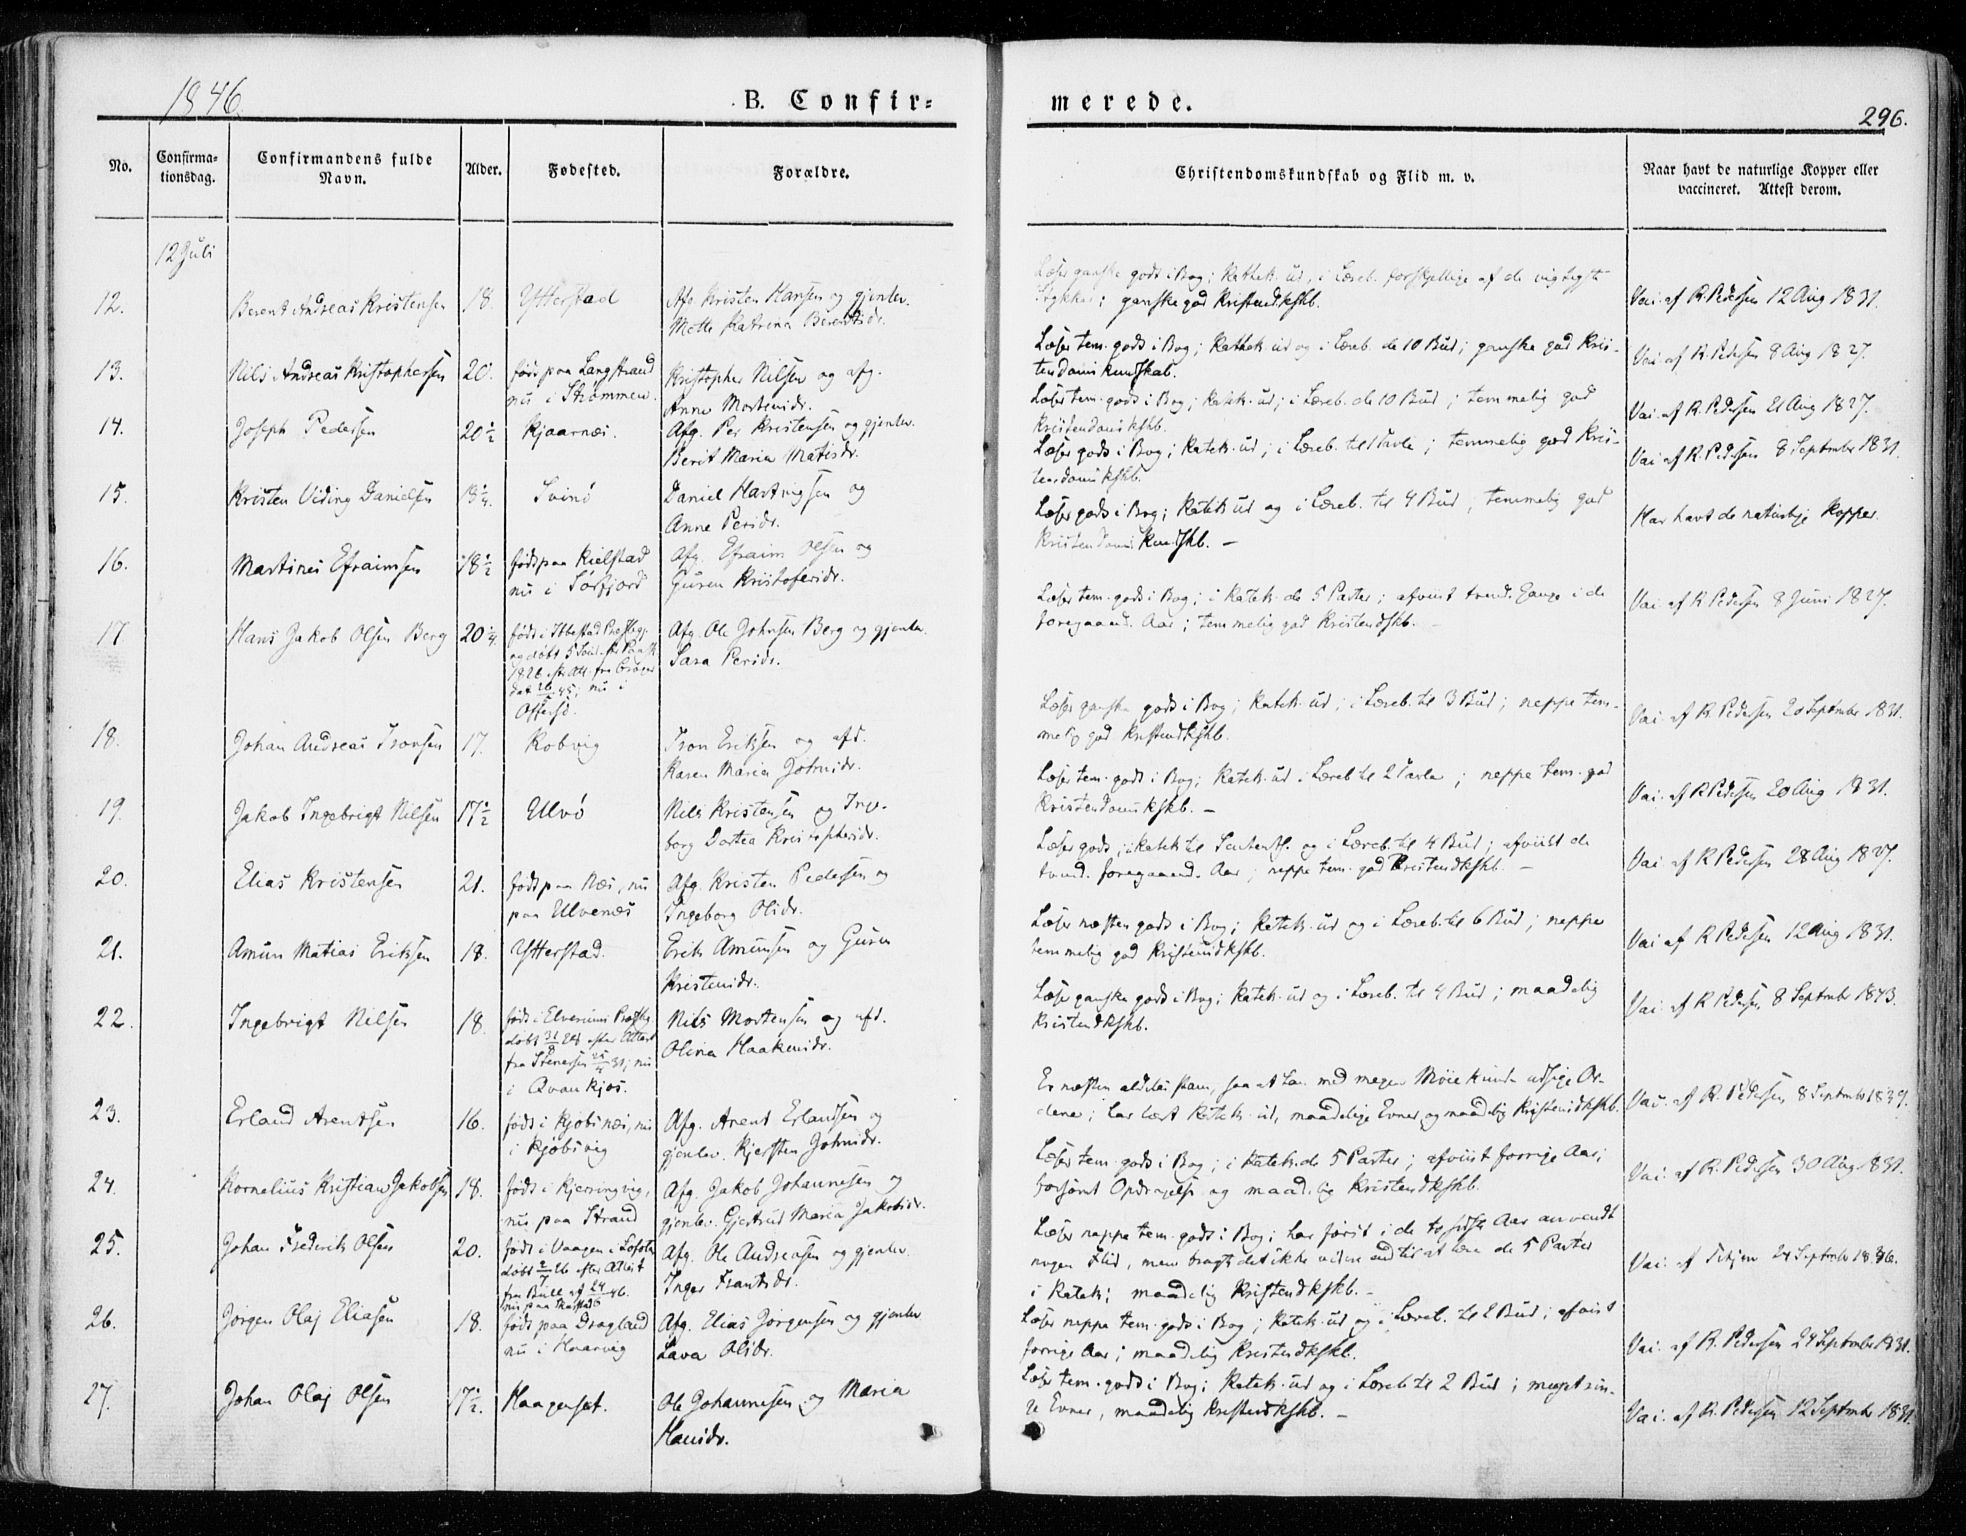 1846.
B. Confir=
merede.
296.
No.
Confirma=
tionsdag.
Confirmandens fulde
Navn.
Alder.
Fødested.
Forældre.
Christendomskundskab og Flid m. v.
Naar havt de naturlige Kopper eller
vaccineret. Attest derom.
12 Juli
12.
Berent Andreas Kristensen
18.
Ytterstad
Afg. Kristen Hansen og gjenlev.
Mette Katrina Berentsdr.
Læser ganske godt i Bog; Katek. ud, i Læreb. forskjellige af de vigtigste
Stykker; ganske god Kristendkskb.
Vai. af R. Pedersen 12 Aug 1831.
13.
Nils Andreas Kristophersen
20.
født paa Langstrand
nu i Strømmen.
Kristopher Nilsen og afg.
Anne Mortensdr.
Læser tem. godt i Bog; Katek. ud og i Læreb. de 10 Bud; ganske god Kris-
tendomskundskab.
Vai. af R. Pedersen 8 Aug 1827.
14.
Joseph Pedersen
20 1/2
Kjaarnæs.
Afg. Per Kristensen og gjenlev.
Berit Maria Matisdr.
Læser tem. godt i Bog; Katek. ud; i Læreb. de 10 Bud; temmelig god
Kristendomskskb.
Vai. af R. Pedersen 21 Aug 1827.
15.
Kristen Viding Danielsen
18 1/4.
Svinø
Daniel Hartvigsen og
Anne Persdr.
Læser godt i Bog; Katek. ud; i Læreb. til Tavle; temmelig god Kris-
tendomskskb.
Vai. af R. Pedersen 8 September 1831.
16.
Martines Efraimsen
18 1/2
født paa Kielstad
nu i Sørfjord
Afg. Efraim Olsen og
Guren Kristofersdr.
Læser godt i Bog; Katek. ud og i Læreb. til 4 Bud; temmelig god
Kristendoms Kundskb. –
Har havt de naturlige Kopper.
17.
Hans Jakob Olsen Berg
20 1/4.
født i Ibbestad Præstegj.
og døbt 5 Sønd. før Paask
1826 efter Att. fra
dat 26/ 45; nu i
Offersø.
Afg. Ole Johnsen Berg og gjenlev.
Sara Persdr.
Læser tem. godt i Bog; i Katek. de 5 Parter; afviist tvend. Gange i de
foregaaend. Aar; temmelig god Kristendkskb. –
Vai. af R. Pedersen 8 Juni 1827.
18.
Johan Andreas Tronsen
17.
Robvig
Tron Eriksen og afd.
Karen Maria Johnsdr.
Læser ganske godt i Bog; Katek. ud; i Læreb. til 3 Bud; neppe tem-
melig god Kristendkskb.
Vai. af R. Pedersen 20 September 1831.
19.
Jakob Ingebrigt Nilsen
17 1/2
Ulvø
Nils Kristensen og Inge-
borg Dortea Kristophersdr.
Læser tem. godt i Bog; Katek. ud i Læreb. til 2 Tavle; neppe tem. god
Kristendomskskb. –
Vai. af R Pedersen 20 Aug 1831.
20.
Elias Kristensen
21.
født paa Næs, nu
paa Ulvenæs
Afg. Kristen Pedersen og
Ingeborg Olsdr.
Læser godt; i Katek. til og i Læreb. til 4 Bud; afviist de
tvend. foregaaend. Aar; neppe tem. god Kristendkskb. –
Vai. af R Pedersen 28 Aug 1827.
21.
Amun Matias Eriksen
18.
Ytterstad.
Erik Amunsen og Guren
Kristensdr.
Læser næsten godt i Bog; Katek. ud og i Læreb. til 6 Bud; neppe
temmelig god Kristendkskb.
Vai af R Pedersen 12 Aug 1831.
22.
Ingebrigt Nilsen
18.
født i Elverums Præsteg.
døbt 31/8 28 efter Attest
fra Stenersen 31; nu
i Qvankjos.
Nils Mortensen og afd.
Olina Haakensdr.
Læser ganske godt i Bog; Katek. ud og i Læreb. til 4 Bud; maadelig
Kristendkskb.
Vai. af R Pedersen 8 September 1843.
23.
Erland Arentsen
16.
født i Kjobsnæs, nu
i Kjøbsvig
Afg. Arent Erlandsen og
gjenlev. Kjersten Johnsdr.
Er næsten aldeles stam, saa at han med megen Møie kunde udsige Or-
dene; har lært Katek. ud, maadelige Evner og maadelig Kristendkskb.
Vai. af R. Pedersen 8 September 1839.
24.
Kornelius Kristian Jakobsen
18.
født i Kjerringvig,
nu paa Strand
Afg. Jakob Johannesen og
gjenlev. Gjertrud Maria Jakobsdr.
Læser tem. godt i Bog; i Katek. de 5 Parter; afviist forrige Aar;
forsømt Opdragelse og maadelig Kristendkskb.
Vai. af R. Pedersen 30 Aug 1831.
25.
Johan Frederik Olsen
20.
født i Vaagen i Lofoten
døbt 2/7 26 efter Attest
fra Bull af 24/6 46.
nu paa
Afg. Ole Andreasen og gjenlev.
Inger Frantsdr.
Læser neppe tem. godt i Bog; har først i de to sidste Aar anvendt
nogen Flid, men bragt det ikke videre end til at lære de 5 Parter
i Katek; maadelig Kristendkskb. –
Vai. af 24 September 1836.
26.
Jørgen Olaj Eliasen
18.
født paa Dragland
nu i Haarvig
Afg. Elias Jørgensen og gjenlev
Lava Olsdr.
Læser neppe tem. godt i Bog; Katek. ud og i Læreb. til 2 Bud; afvist
forrige Aar; maadelig Kristendkskb.
Vai. af R. Pedersen 24 September 1831.
27.
Johan Olaj Olsen
17 1/2.
Haagenset.
Ole Johannesen og Maria
Hansdr.
Læser tem. godt i Bog; Katek. ud og i Læreb. til 2 Bud; meget rin-
ge Evner, maadelig Kristendkskb. –
Vai. af R. Pedersen 12 September 1831.